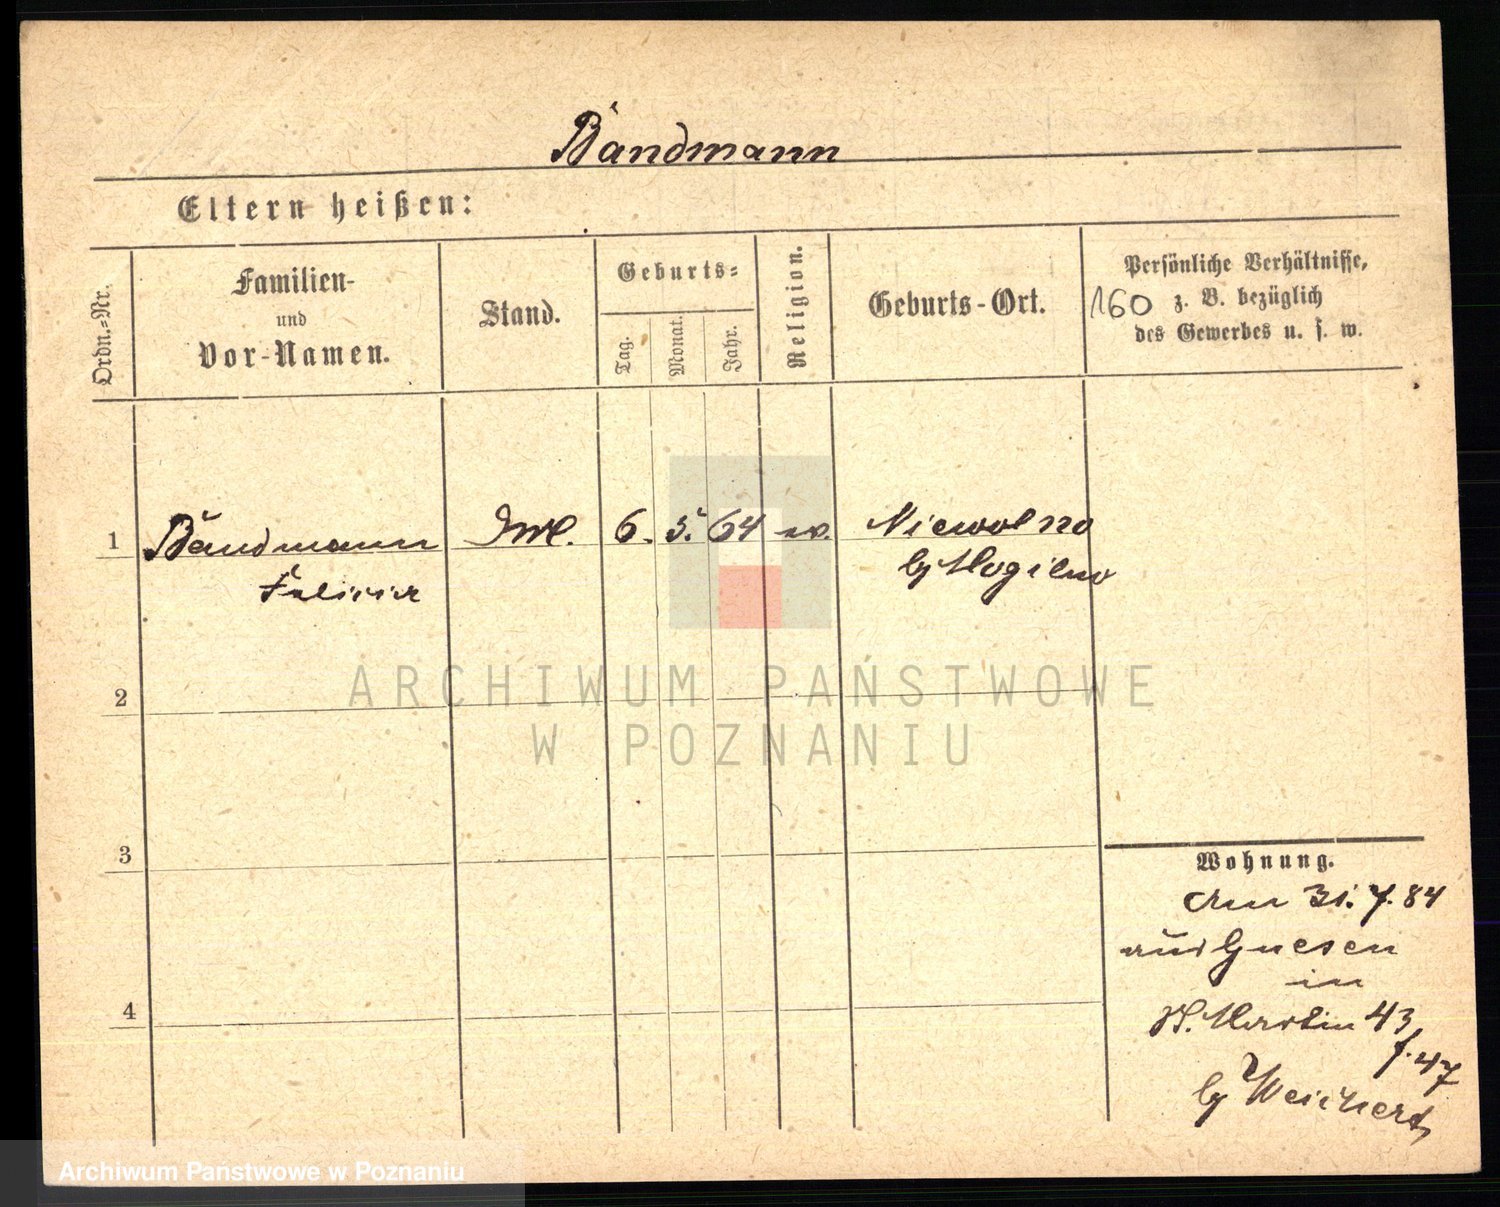 Bandmann
Eltern heißen:
Ordn.=Nr.
Familien-
und
Vor-Namen.
Stand.
Geburts=
Tag.
Monat.
Jahr.
Religion.
Geburts-Ort.
Persönliche Verhältnisse,
160 z. B. bezüglich
des Gewerbes u. s. w.
1 Bandmann 6. 5. 64 ev. Niewolno
b/ Mogilno
2
ARCHIWUM PAŃSTWOWE
W POZNANIU
3
Wohnung.
Am 31. 7. 84
aus Gnesen
in
St. Martin 43
f. 47
b/ Weichert
4
Archiwum Państwowe w Poznaniu